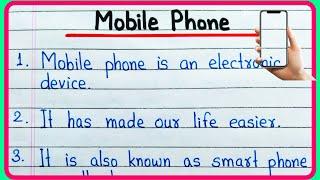 Mobile Phone
1. Mobile phone is an electronic
device.
2. It has made our life easier.
3. It is also known as smart phone